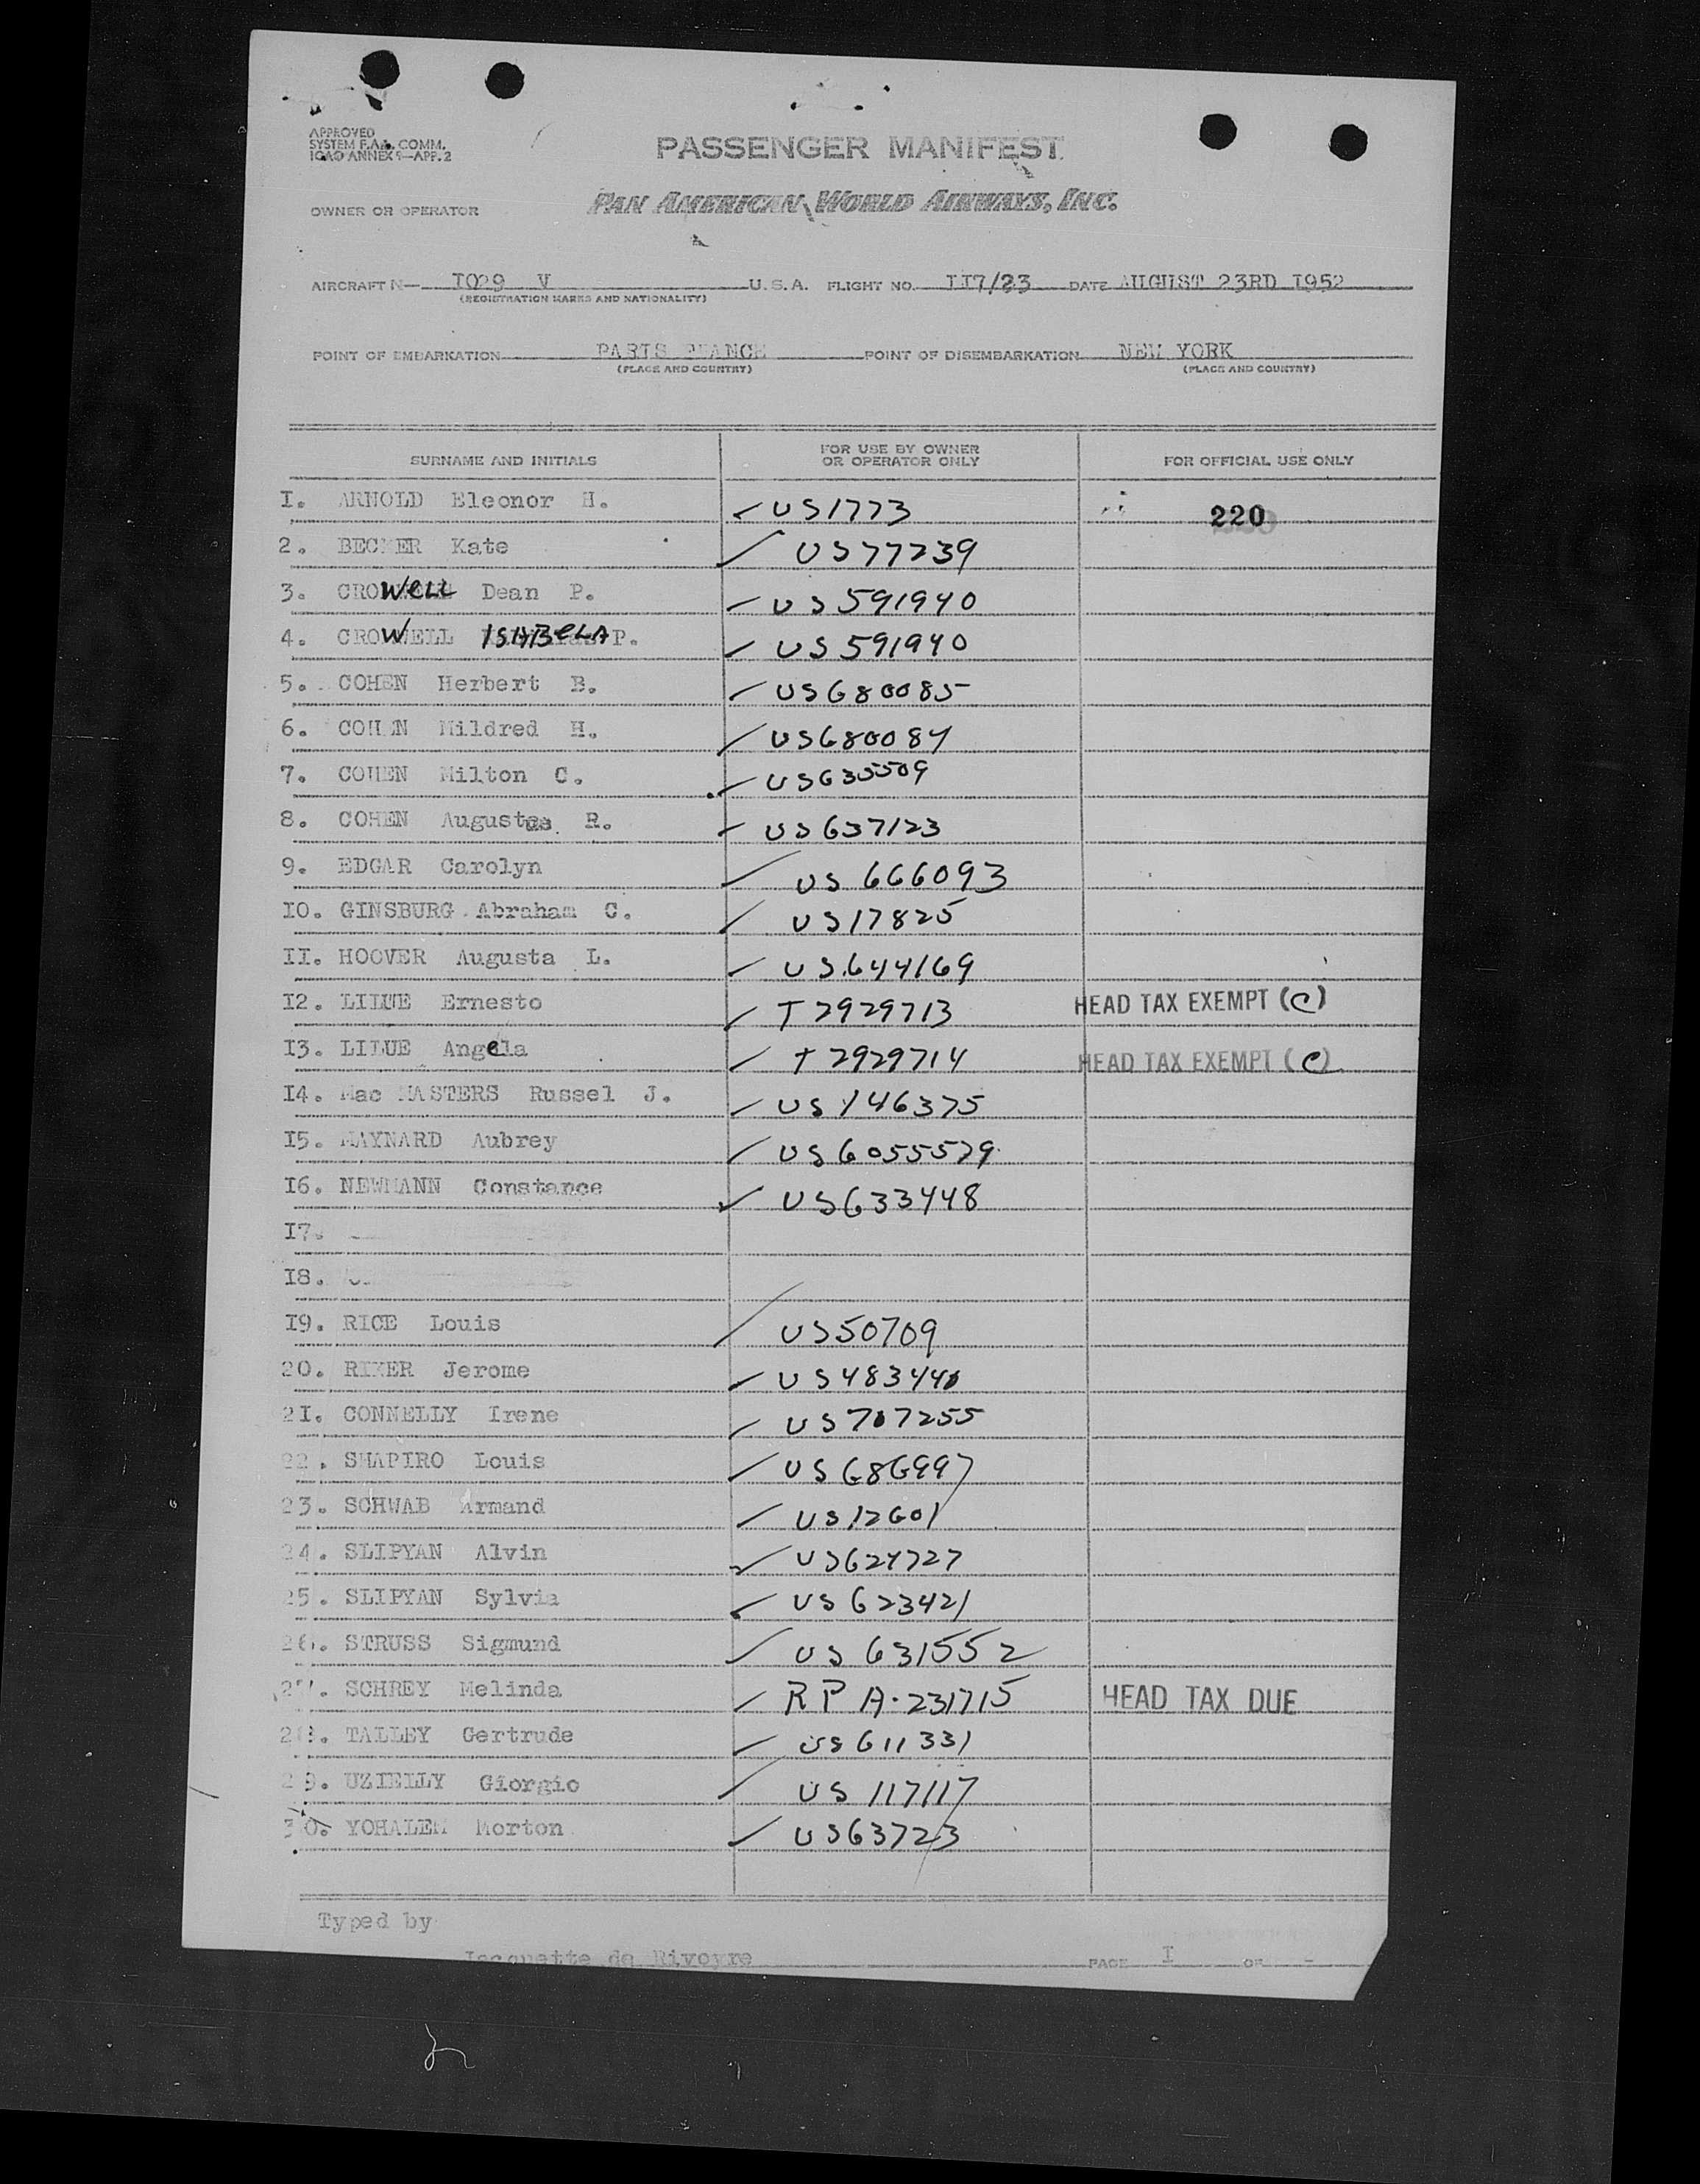 APPROVED
SYSTEM F.A.L. COMM.
ICAO ANNEX 9—APP. 2
PASSENGER MANIFEST
OWNER OR OPERATOR PAN AMERICAN WORLD AIRWAYS, INC.
AIRCRAFT N— I029 V U.S.A. FLIGHT NO. II7/23 DATE AUGUST 23RD I952
(REGISTRATION MARKS AND NATIONALITY)
POINT OF EMBARKATION PARIS FRANCE POINT OF DISEMBARKATION NEW YORK
(PLACE AND COUNTRY) (PLACE AND COUNTRY)
SURNAME AND INITIALS FOR USE BY OWNER OR OPERATOR ONLY FOR OFFICIAL USE ONLY
I. ARNOLD Eleonor H. US1773 220
2. BECKER Kate US77239
3. CROWELL Dean P. US591940
4. CROWELL ISABELA P. US591940
5. COHEN Herbert B. US680085
6. COHEN Mildred H. US680084
7. COHEN Milton C. US635509
8. COHEN Augustus R. US637123
9. EDGAR Carolyn US 666093
I0. GINSBURG Abraham C. US17825
II. HOOVER Augusta L. US.644169
I2. Ernesto T2929713 HEAD TAX EXEMPT (C)
I3. Angela T2929714 HEAD TAX EXEMPT (C)
I4. Mac MASTERS Russel J. US146375
I5. MAYNARD Aubrey US6055579
I6. NEWMANN Constance US633448
I7.
I8.
I9. RICE Louis US50709
20. Jerome
2I. CONNELLY Irene US707255
22. SHAPIRO Louis US686997
23. SCHWAB Armand US12601
24. SLIPYAN Alvin US624727
25. SLIPYAN Sylvia US623421
26. STRUSS Sigmund US 631552
27. SCHREY Melinda RP A-231715 HEAD TAX DUE
28. TALLEY Gertrude US611331
29. UZIELLY Giorgio US 117117
30. YOHALEM Morton US63723
Typed by
Jacquette de Rivoyre PAGE I OF -